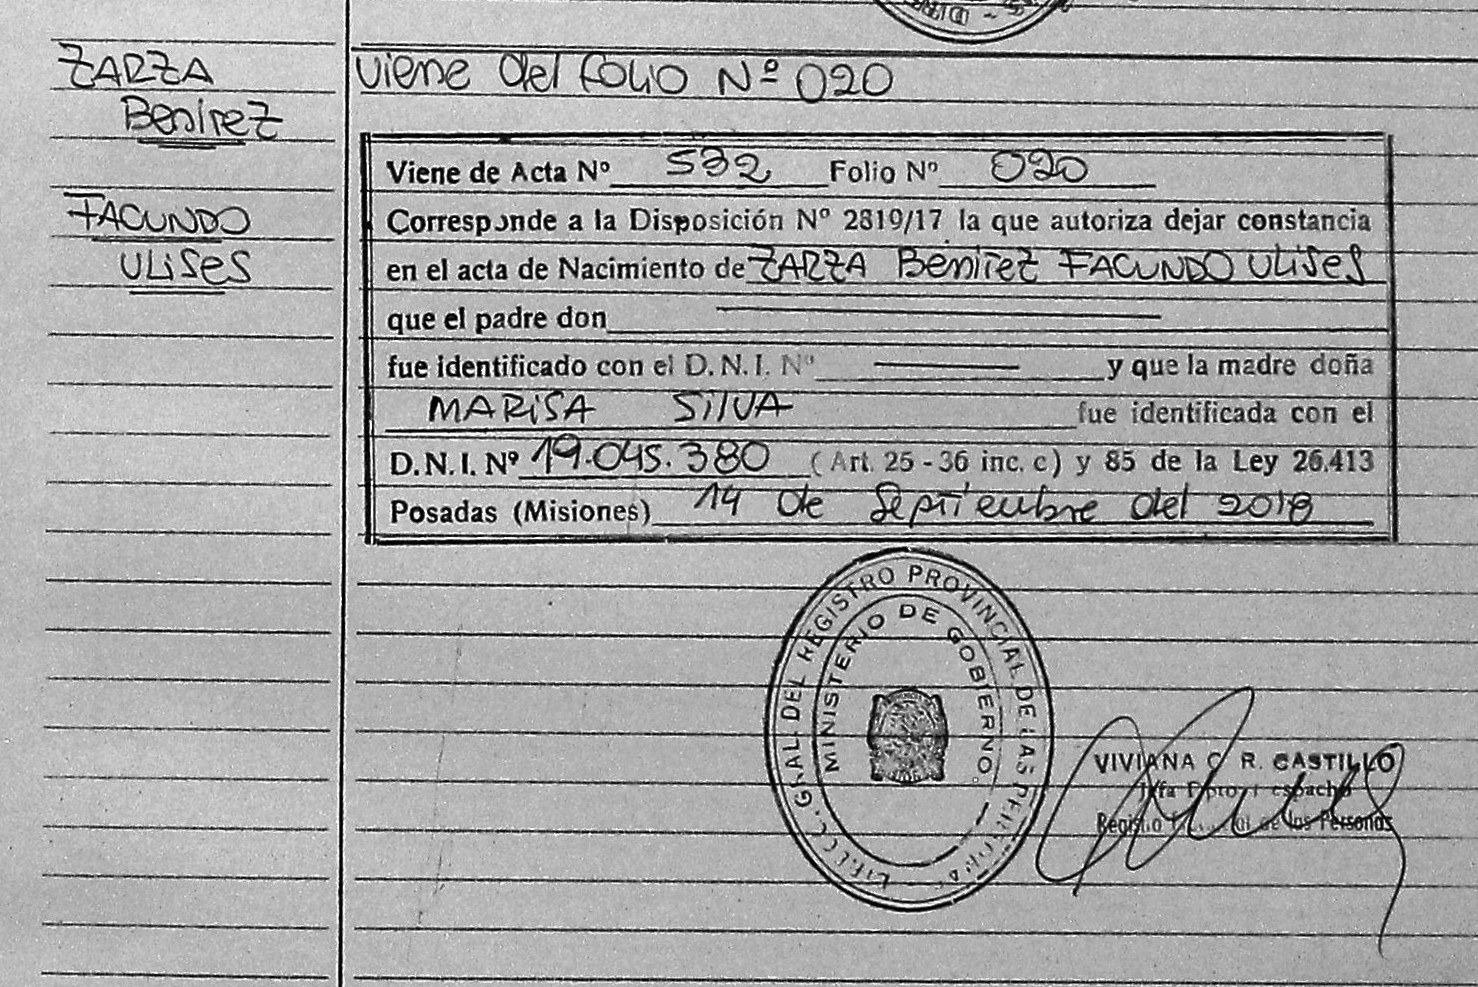 ZARZA
Benitez
FACUNDO
ULISES
Viene del FOLIO Nº 020
Viene de Acta Nº 532 Folio Nº 020
Corresponde a la Disposición Nº 2819/17 la que autoriza dejar constancia
en el acta de Nacimiento de ZARZA Benitez FACUNDO ULISES
que el padre don
fue identificado con el D.N.I. Nº y que la madre doña
MARISA SILVA fue identificada con el
D.N.I. Nº 19.045.380 (Art. 25 - 36 inc. c) y 85 de la Ley 26.413
Posadas (Misiones) 14 de Septiembre del 2018
GRAL. DEL REGISTRO PROVINCIAL DE LAS PERSONAS
MINISTERIO DE GOBIERNO
VIVIANA C. R. CASTILLO
Jefa Dpto. Despacho
Registro de las Personas